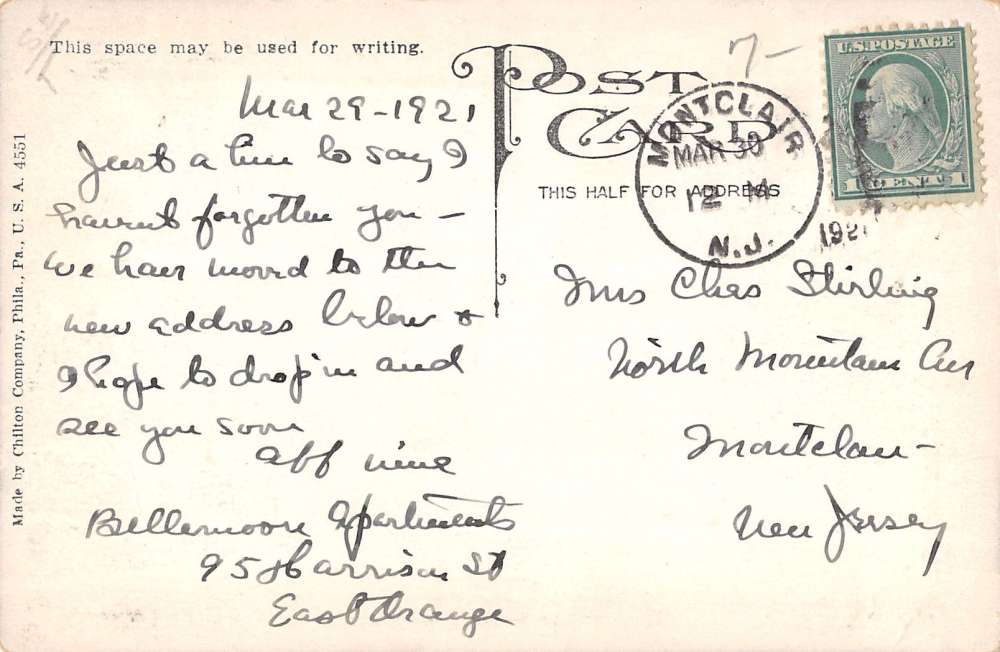 This space may be used for writing.
Mar 29-1921
Just a line to say I
havent forgotten you -
we have moved to the
new address below &
I hope to drop in and
see you soon
aff
Apartments
95 Harrison St
East Orange
Made by Chilton Company, Phila., Pa., U. S. A. 4551
POST
CARD
THIS HALF FOR ADDRESS
7-
MONTCLAIR
MAR 30
12 M
1921
N.J.
U.S. POSTAGE
1 CENT 1
Mrs Chas Stirling
North Mountain Ave
Montclair-
New Jersey